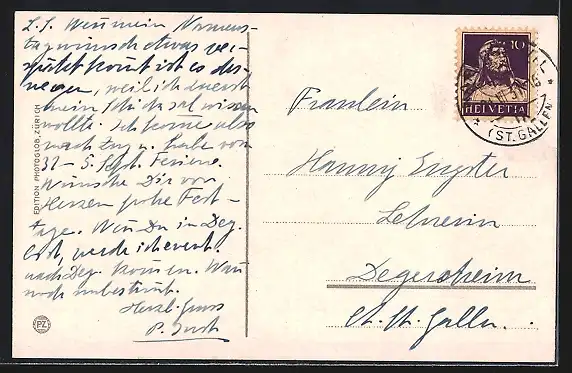 L. S. Wenn mein Namens-
tagwunsch etwas ver-
spätet kommt ist es des-
wegen, weil ich zuerst
mein Schicksal wissen
wollte. Ich komme also
nach und habe vom
31 - 5. Sept. Ferien.
Wünsche Dir von
Herzen frohe Fest-
tage. Wenn Du in Deg.
bist, werde ich event.
nach Deg. kommen. Wann
noch unbestimmt.
Herzl. Gruss
P.
EDITION PHOTOGLOB, ZÜRICH
PZ
10
HELVETIA
(ST. GALLEN)
Fräulein
Hanny
Lehrerin
Degersheim
Ct. St. Gallen.